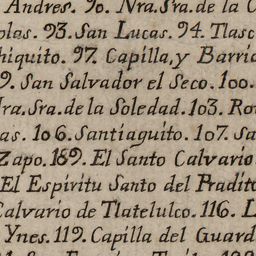 Andres. 90. Nra. Sra. de la C
olas. 93. San Lucas. 94. Tlasc
hiquito. 97. Capilla, y Barrio
9. San Salvador el Seco. 100.
Nra. Sra. de la Soledad. 103. Ro
as. 106. Santiaguito. 107. Sa
Zapo. 189. El Santo Calvario
El Espiritu Santo del Pradito
Calvario de Tlatelulco. 116. L
Ynes. 119. Capilla del Guard